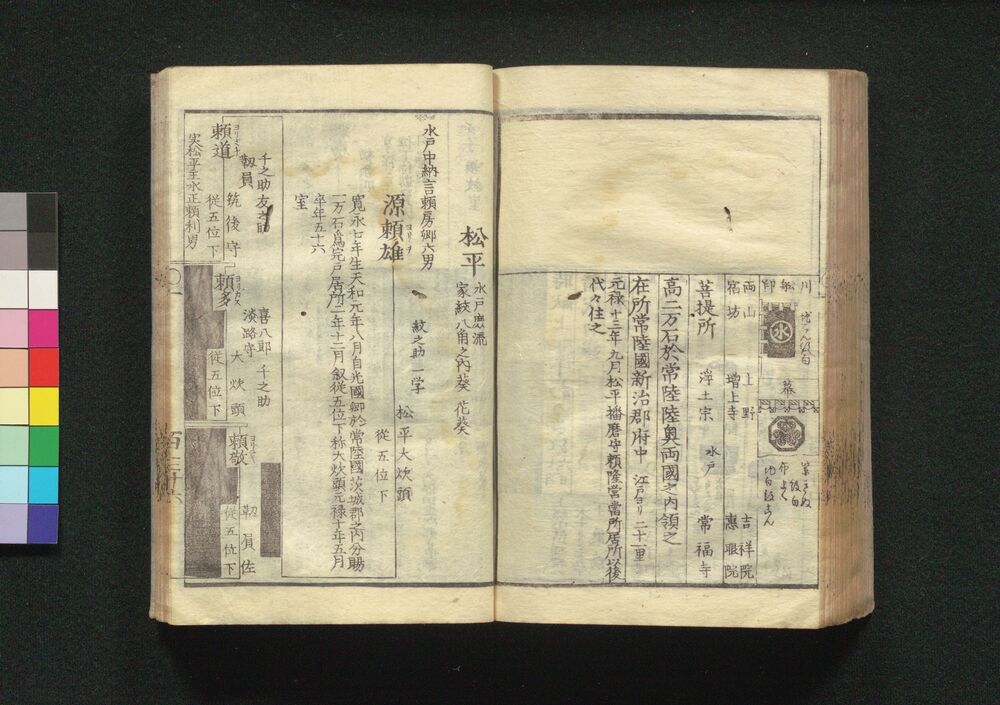 川船印
幕
両山 上野 吉祥院
宿坊 増上寺 惠眼院
菩提所 浄土宗 水戸 常福寺
高二万石於常陸陸奥両國之内領之
在所常陸國新治郡府中 江戸ヨリ二十一里
元禄十三年九月松平播磨守頼隆営當所居所以後
代々住之
松平 水戸庶流
家紋八角之内葵 花葵
水戸中納言頼房卿六男
紋之助 一学 松平大炊頭
源頼雄 ヨリヲ 従五位下
寛永七年生天和元年八月自光國卿於常陸國茨城郡之内分賜
一万石爲宍戸居所二年十二月叙従五位下称大炊頭元禄十年五月
卒年五十六
室
千之助 友之助
頼道 ヨリミチ 靱員 筑後守
従五位下
実松平主水正頼利男
喜八郎 千之助
頼多 ヨリカズ 淡路守 大炊頭
従五位下
頼敬
靱員佐
従五位下
百二十六